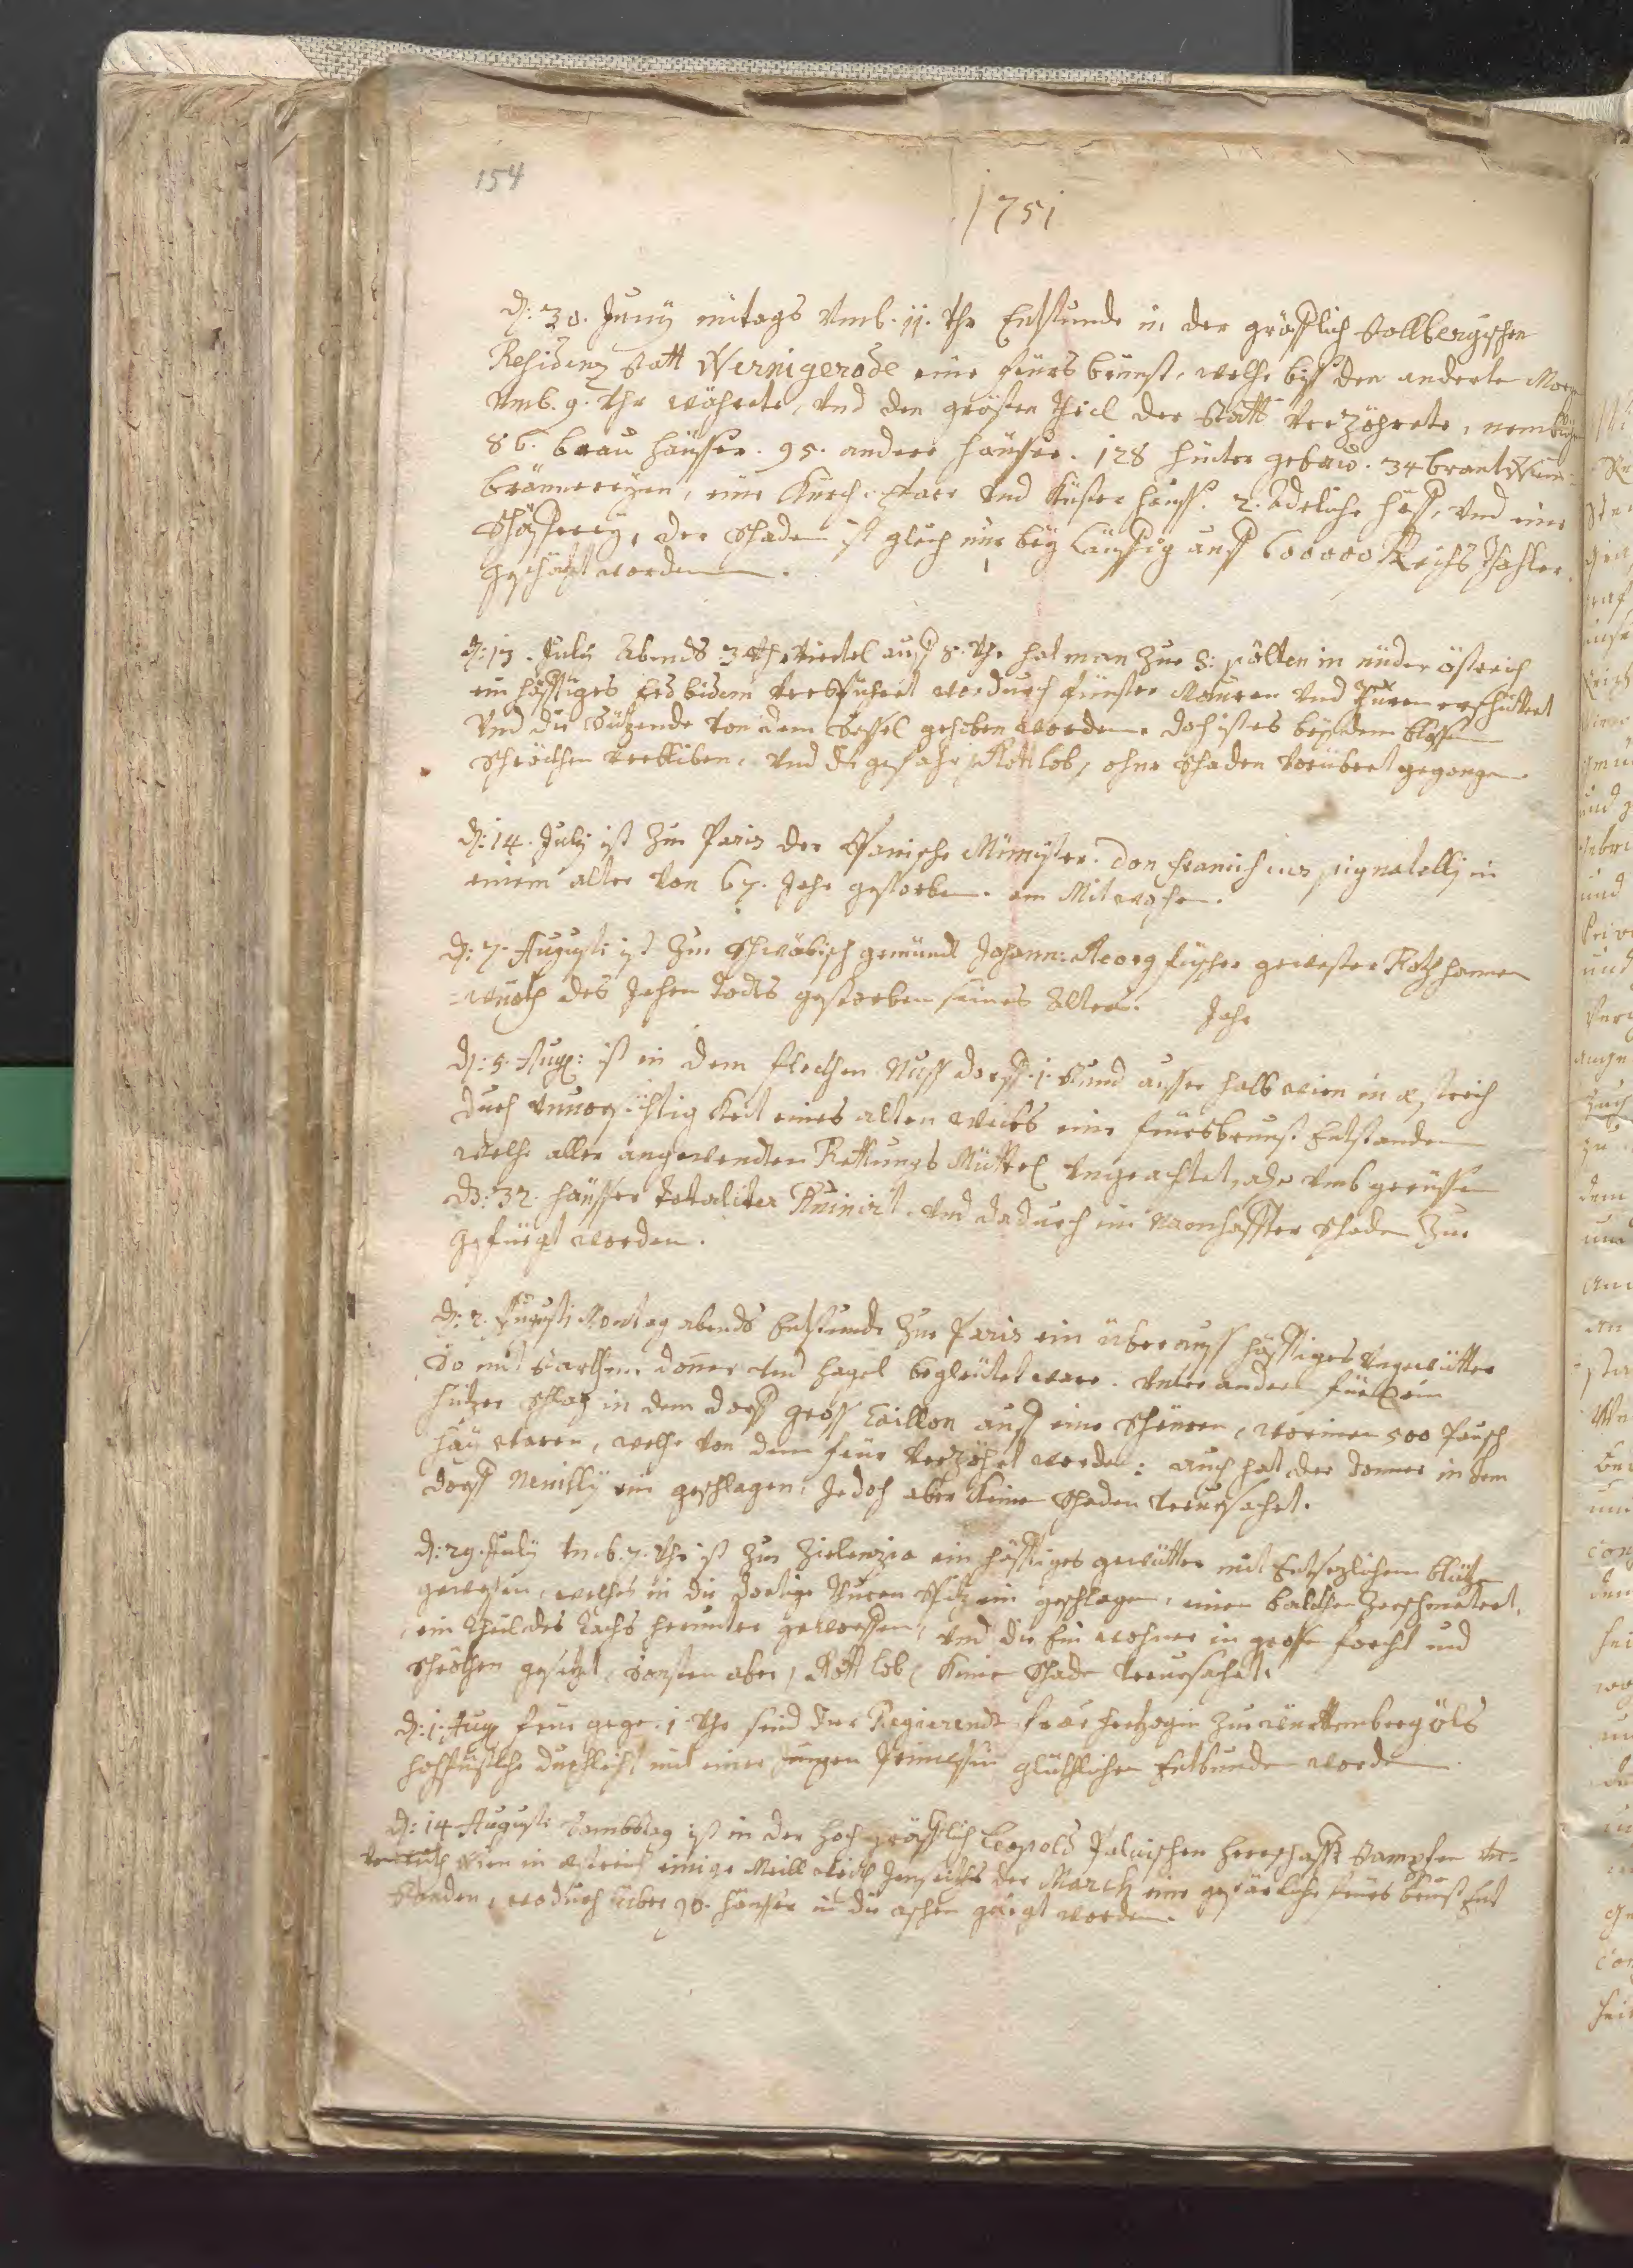 154
1751
d: 30. Juny mitags Vmb. 11. Vhr Entstunde in der gräflich Stollbergischen
Residenz Statt Wernigerode eine feürs brunst, welche biß den anderten
Vmb. 9. Vhr währete, Vnd den grösten theil der Statt Verzöhrete, nemblich
86. brau häusser. 95. andere häuser. 128 hinter gebäw. 34 brantwein-
brännereyen, eine Kirch. Pfarr Vnd Küster hauß. 2. adeliche Vnd eine
Schäfferey, der Schaden ist gleich nur bey läuffig auff 600000 Reichs Thahler
geschätzt worden.
d: 13. July Abends 3 Viertel auff 8. Vhr hat man Zue S: pölten in nider östreich
ein häfftiges Erdbidem Verspühret wordurch fünster Mauren Vnd thüren erschüttert
Vnd die Sützende Von dem Sessel gehoben worden. doch ist es bey dem blossen
Schröckhen Verbliben, Vnd die gefahr, Gott lob, ohne Schaden Vorüber gegangen
d: 14. July ist Zue Paris der Spanische Minister. Don Franciscus pignatelly in
einem alter Von 67. Jahr gestorben. am Mitwochen.
d: 7. Augusti ist Zue Schwäbisch gemündt Johann: Georg fischer gewester
des Jehen Todts gestorben seines Alters. Jahr
d: 5. Aug: ist in dem flecken Nuss dorff. 1. Stund ausser halb wien in östreich
durch Vnuorsichtig Keit eines alten weibs eine feürsbrunst Entstanden
welche aller angewendten Rettungs Müttel Vngeachtet,
32. häusser totaliter Ruinirt. Vnd dadurch ein Namhaffter Schaden Zue
gefüegt worden.
d: 2. Augusti Montag abends Entstunde Zue Paris ein überauss häfftiges Vngewitter
So mit starckem doner Vnd hagel begleitet ware. Vnter andern fiel ein
hitzer Schlag in dem dorff gross Caillon auff eine Scheuren, worinen 500
häu waren, welche Von dem feür Verzöhrt worden: auch hat der donner in dem
dorff Neuilly ein geschlagen, Jedoch aber Keinen Schaden Verursachet.
d: 29. July Vmb. 7. Vhr ist Zue Zielenzia ein häfftiges gewitter mit Entsezlichem blitz
gewesen, welches in die dortige Thuren Spitz ein geschlagen, einen balcken Zerschmetert,
ein theil des Tachs herunter geworffen, Vnd die Einwohner in grosse forcht und
Schröcken gesetzt, Sonsten aber, Gott lob, Keinen Schaden Verursachet.
d: 1. Aug frue gege. 1 Vhr sind der Regierende frau hertzogin Zue württemberg öls
hochfürstliche durchleicht, mit einer jungen Princessin glücklichen Entbunden worden
d: 14 Augusti Sambstag ist in der hoch gräfflich Leopold Palvischen herrschafft Stampfen
wien in östreich einige Meill Jenseits der March eine gefärliche feürs brunst Ent
standen, wodurch über 90. häusser in die aschen gelegt worden.